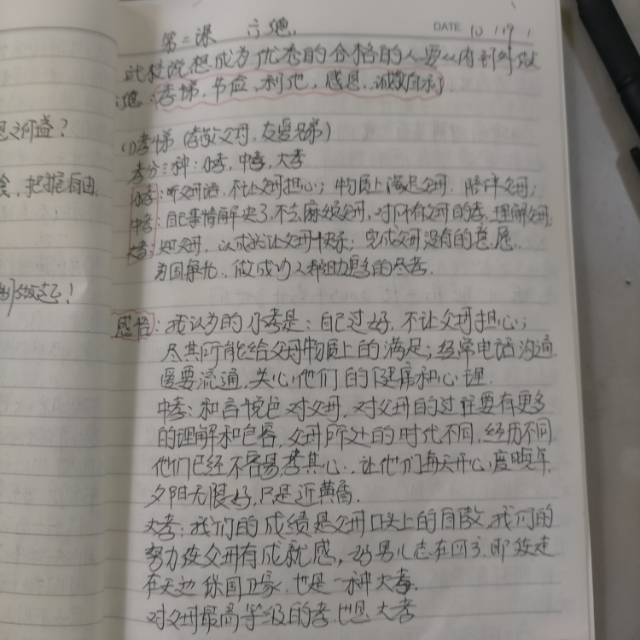 第二课 六德
DATE 10.17.
试卷院想成为优秀的合格的人要从内到外做
德(孝悌,书应,利他,感恩,诚敬)
(1)孝悌(孝敬父母,友爱兄弟)
孝分三种:小孝,中孝,大孝
小孝:听父母话,不让父母担心;物质上满足父母,陪伴父母,
中孝:自己事情解决了不去麻烦父母,对所有父母的孝,理解父母,
大孝:父母,以成就让父母快乐,完成父母没有的意愿,
为国争光,做成功人帮助更多的尽孝.
思考:我认为的小孝是:自己过好,不让父母担心;
尽其所能给父母物质上的满足,经常电话沟通
爱要流通,关心他们的健康和心理.
中孝:和言悦色对父母,对父母的过往要有更多
的理解和包容,父母所处的时代不同,经历不同
他们已经不容易孝其心,让他们每天开心度晚年
夕阳无限好,只是近黄昏.
大孝:我们的成绩是父母口头上的国歌,我们的
努力使父母有成就感,好男儿志在四方,即使走
在天边 保国卫家,也是一种大孝.
对父母最高学级的孝也是大孝
思之何益?
食,把握自由,
制约忘了!